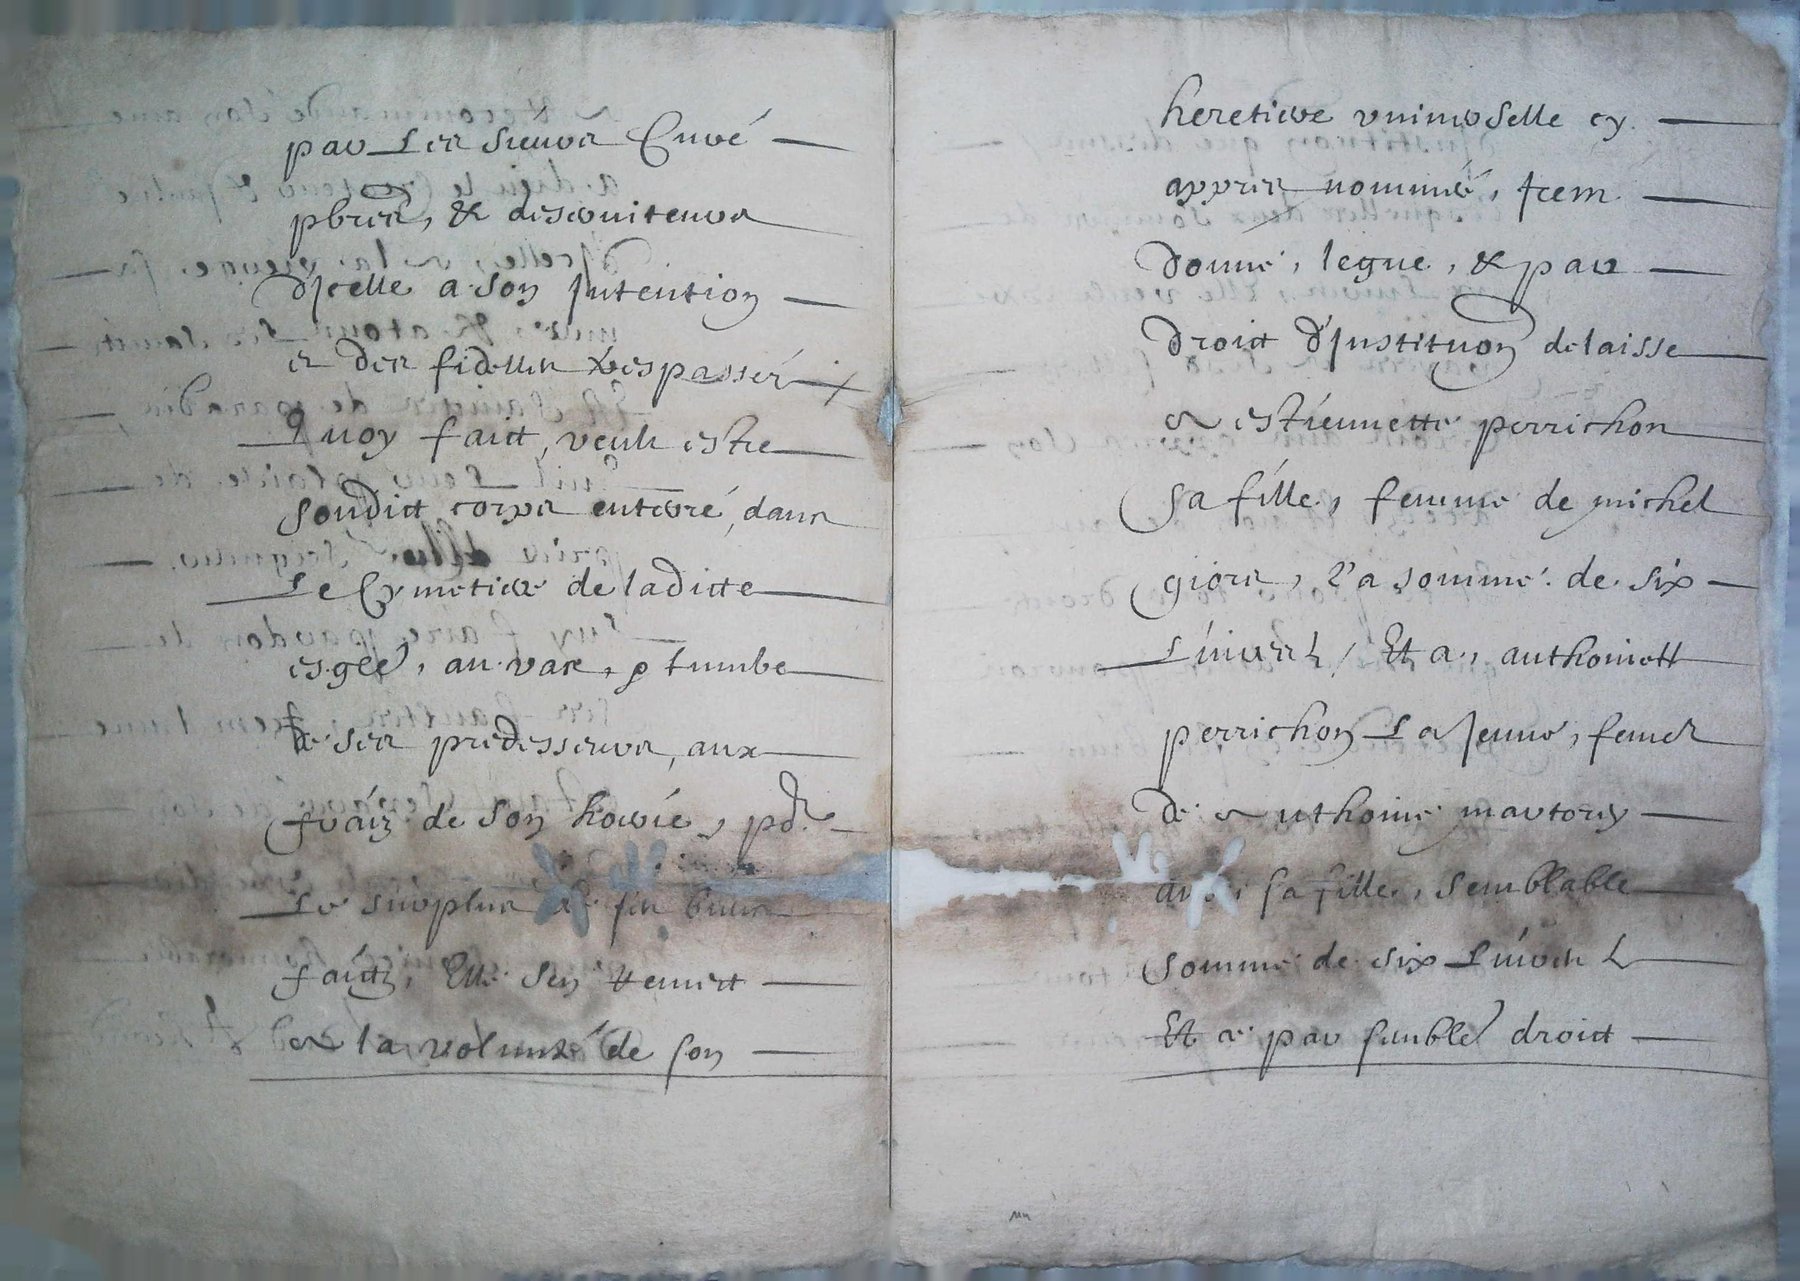 par Les sieurs Curé
pbres, & deserviteurs
d'Jcelle a son Jntention
et des fidelles trespassés
Quoy faict, veult estre
sondict corps enterré, dans
Le Cymetiere de laditte
esglé, au vas, & tumbe
de ses predesseurs, aux
fraiz de son hoirie,
Le surplus de ses biens
faictz, Elle s'en remect
a la volunté de son
heretiere universelle cy
appres nommée, Jtem
donne, legue, & par
droict d'Justituon delaisse
a estiennette perrichon
sa fille, femme de michel
giora, l'a somme de six
Livres / Et a, anthoinett
perrichon La Jeune, feme
de anthoine martory
aussi sa fille, semblable
somme de six Livres
Et ce par semblé droict